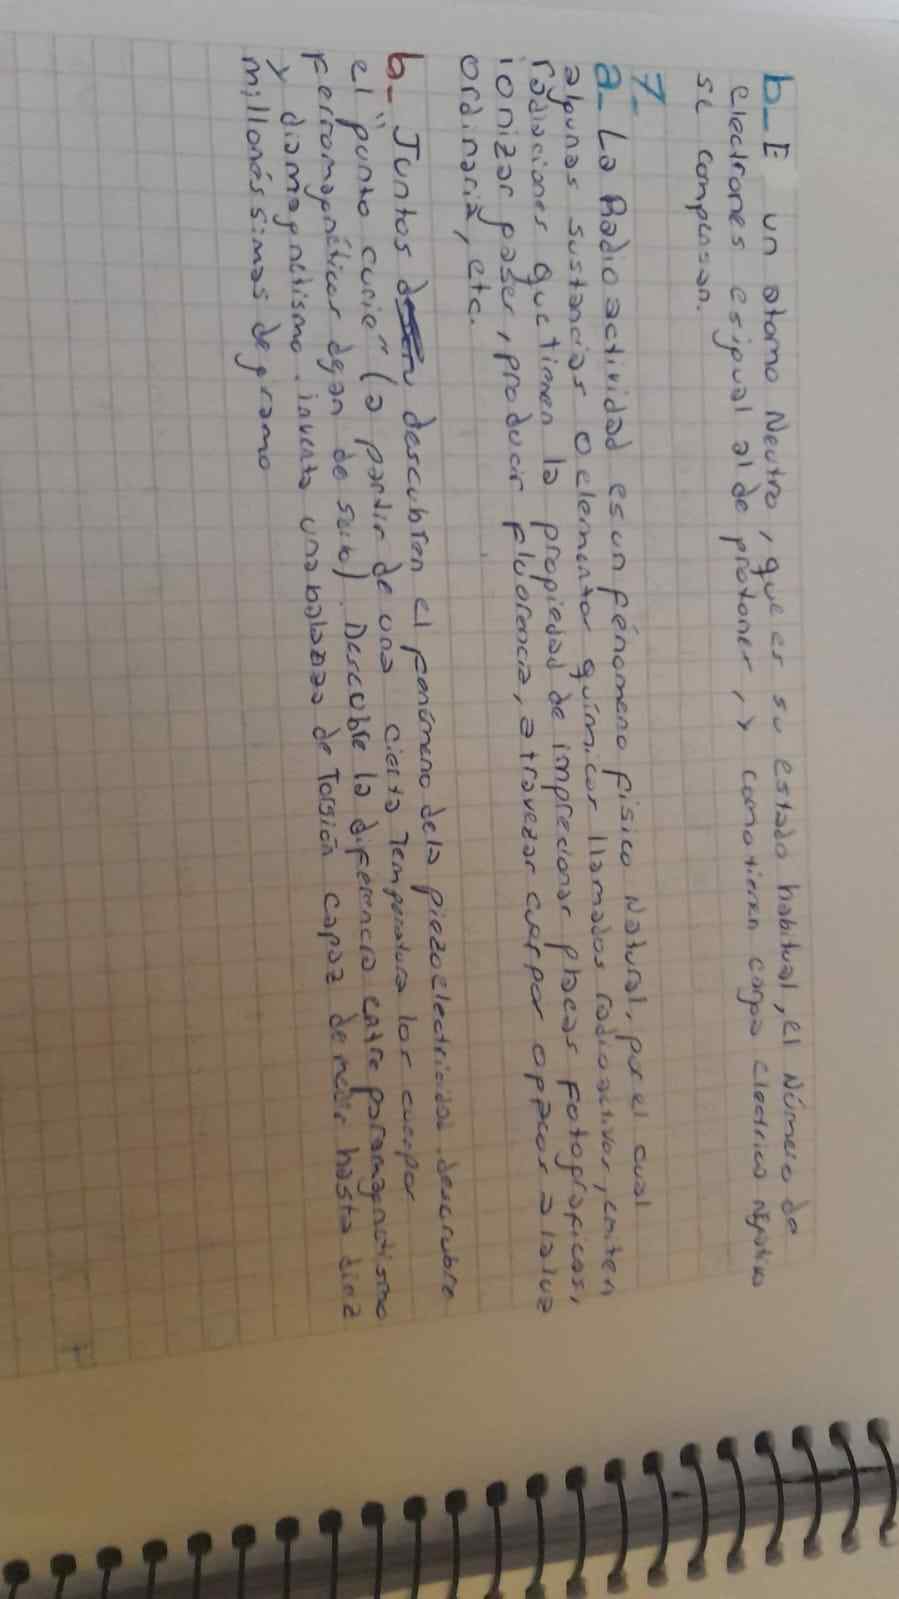 b_ E un atomo Neutro, que es su estado habitual, el Número de
electrones es igual al de protones, y como tienen carga electrica negativa
se compensan.
7_
a_ La Radioactividad es un fénomeno fisico Natural, por el cual
algunas sustancias o elementos químicos llamados radioactivos, emiten
radiaciones que tienen la propiedad de imprecionar placas fotograficas,
ionizar gases, producir fluorencia, atravezar cuerpos oppacos a la luz
ordinaria, etc.
b_ Juntos descubren el fenómeno de la piezoelectricidad. descrubre
el "punto curie" (a partir de una cierta Temperatura los cuerpos
Ferromagnéticos dejan de serlo). Descubre la diferencia entre paramagnetismo
y diamagnetismo. inventa una balanza de Torsión capaz de medir hasta diez
millonés simas de gramo